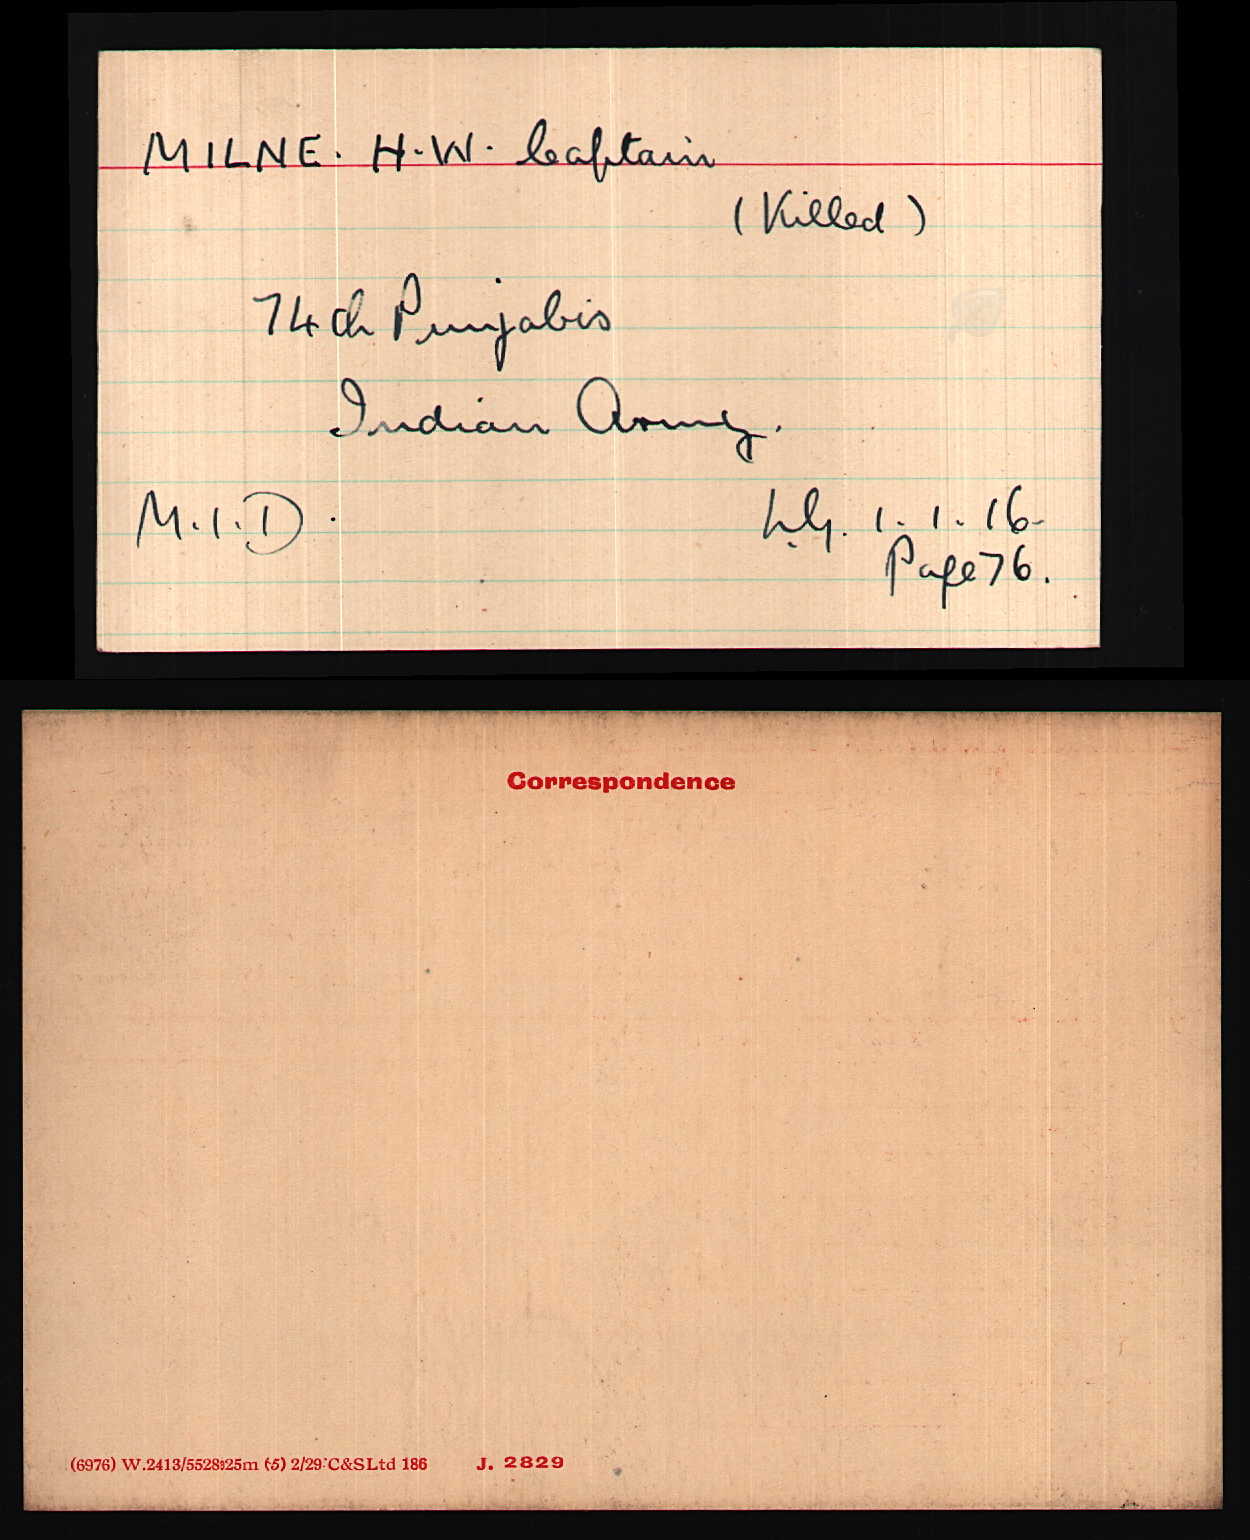 MILNE. H.W. Captain
(Killed)
74th Punjabis
Indian Army.
M.I.D.
L.G. 1.1.16
Page 76.
Correspondence
(6976) W.2413/5528 25m (5) 2/29 C&SLtd 186 J. 2829